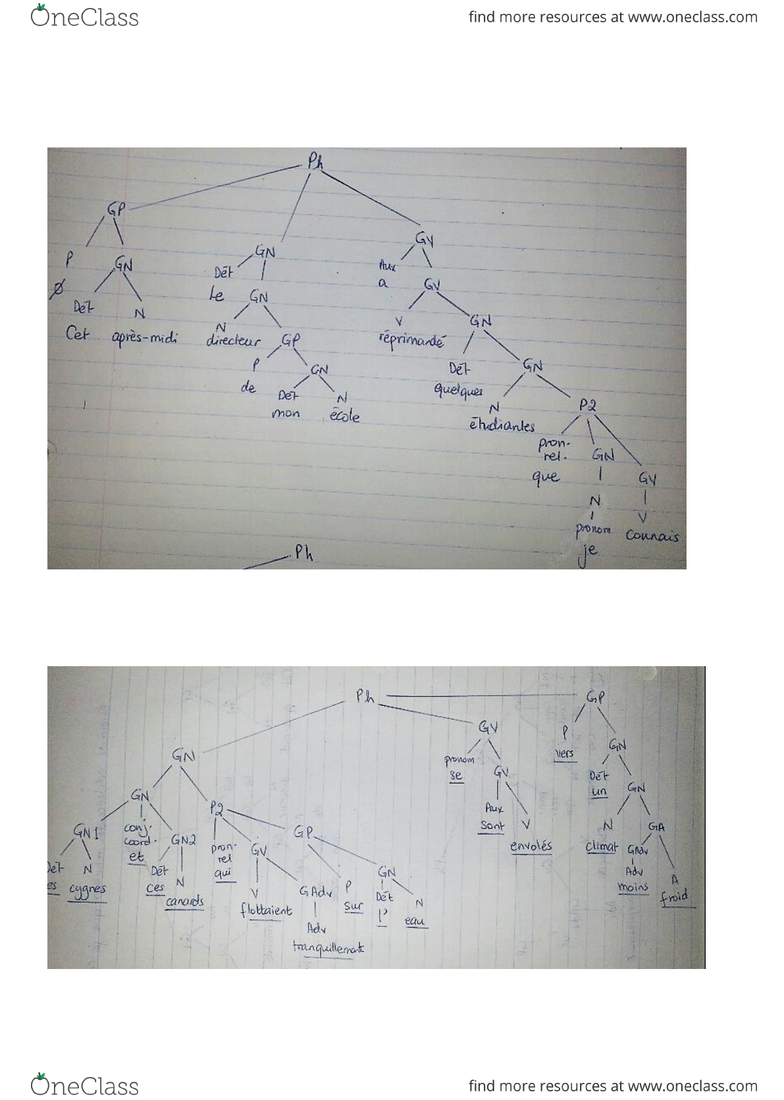 OneClass
find more resources at www.oneclass.com
Ph
GP
GN
GV
P
GN
Dét
Aux
Ø
Le
GN
a
GV
Dét
N
N
V
GN
Cet
après-midi
directeur
GP
réprimandé
P
GN
Dét
GN
de
Dét
N
quelques
N
P2
mon
école
étudiantes
pron.
rel.
GN
GV
que
N
V
pronom
connais
je
Ph
Ph
GP
GV
P
GN
pronom
vers
GN
se
GV
Dét
GN
GN
P2
un
GN1
conj.
coord.
GN2
pron.
rel
GV
GP
Aux
V
N
GA
et
sont
envolés
climat
GAdv
Dét
N
Dét
N
qui
V
GAdv
P
GN
Adv
A
es
cygnes
ces
canards
flottaient
Adv
sur
Dét
N
moins
froid
l'
eau
tranquillement
OneClass
find more resources at www.oneclass.com